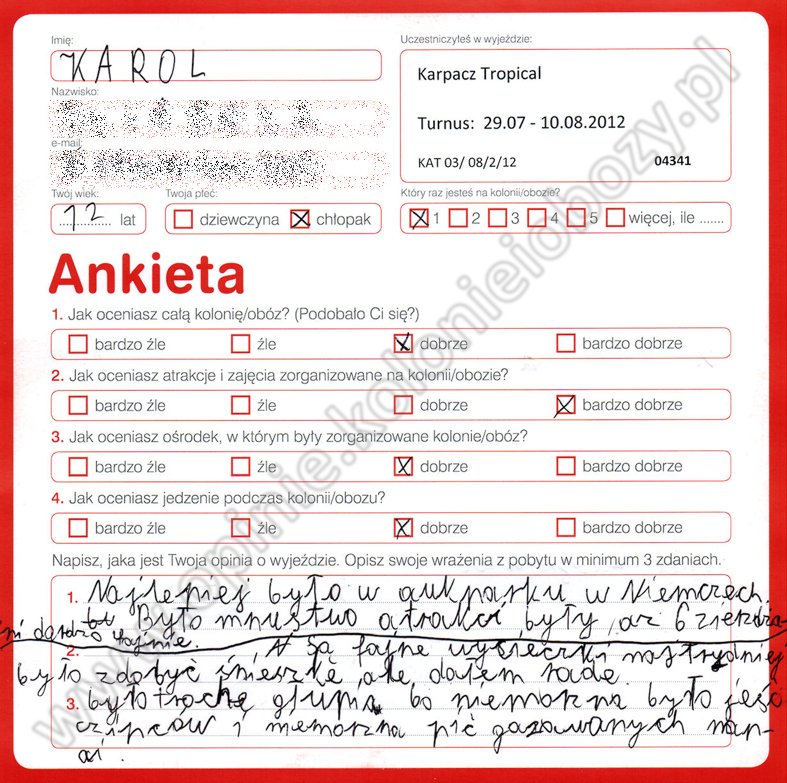 Imię:
KAROL
Uczestniczyłeś w wyjeździe:
Karpacz Tropical
Turnus: 29.07 - 10.08.2012
KAT 03/ 08/2/12 04341
Nazwisko:
e-mail:
Twój wiek:
12 lat
Twoja płeć:
dziewczyna chłopak
Który raz jesteś na kolonii/obozie?
1 2 3 4 5 więcej, ile .......
Ankieta
1. Jak oceniasz całą kolonię/obóz? (Podobało Ci się?)
bardzo źle źle dobrze bardzo dobrze
2. Jak oceniasz atrakcje i zajęcia zorganizowane na kolonii/obozie?
bardzo źle źle dobrze bardzo dobrze
3. Jak oceniasz ośrodek, w którym były zorganizowane kolonie/obóz?
bardzo źle źle dobrze bardzo dobrze
4. Jak oceniasz jedzenie podczas kolonii/obozu?
bardzo źle źle dobrze bardzo dobrze
Napisz, jaka jest Twoja opinia o wyjeździe. Opisz swoje wrażenia z pobytu w minimum 3 zdaniach.
1. Najlepiej było w aukparku w Niemczech.
Było mnustwo atrakci były, aż 6 zieżdża-
ni bardzo fajnie.
2. A są fajne wycieczki najtrudniej
było zdobyć śnieszkę ale dałem radę.
3. było trochę głupia bo niemorzna było jeść
czipców i niemorzna pić gazowanych nap-
oi.
www.opinie.kolonieiobozy.pl